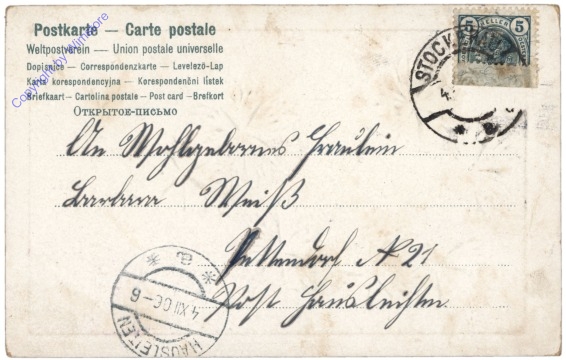 Postkarte — Carte postale
Weltpostverein — Union postale universelle
Dopisnice — Correspondenzkarte — Levelező-Lap
Karta korespondencyjna — Korespondenční lístek
Briefkaart — Cartolina postale — Post card — Brefkort
Открытое-письмо
5 HELLER 5
STOCK
4.
An Wohlgebornes Fräulein
Barbara Weiß
Pettendorf № 21
Post Hausleithen
* a *
4 XII 06-6
HAUSLEITEN